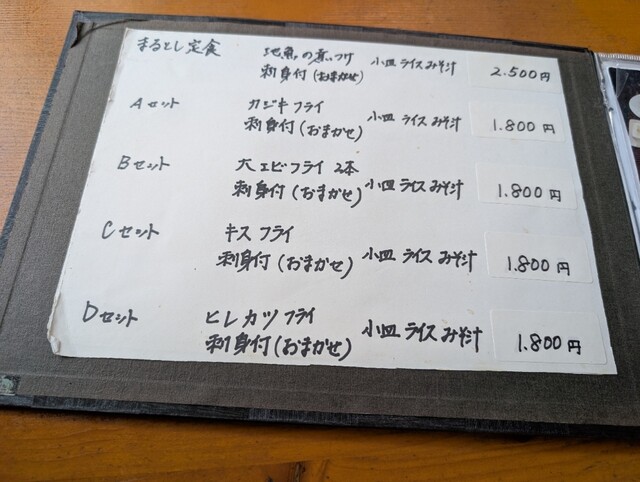 まるとし定食 地魚の煮つけ 小皿 ライス みそ汁 2.500円
刺身付(おまかせ)
Aセット カジキフライ 小皿 ライス みそ汁 1.800円
刺身付(おまかせ)
Bセット 大エビフライ 2本 小皿 ライス みそ汁 1.800円
刺身付(おまかせ)
Cセット キスフライ 小皿 ライス みそ汁 1.800円
刺身付(おまかせ)
Dセット ヒレカツフライ 小皿 ライス みそ汁 1.800円
刺身付(おまかせ)